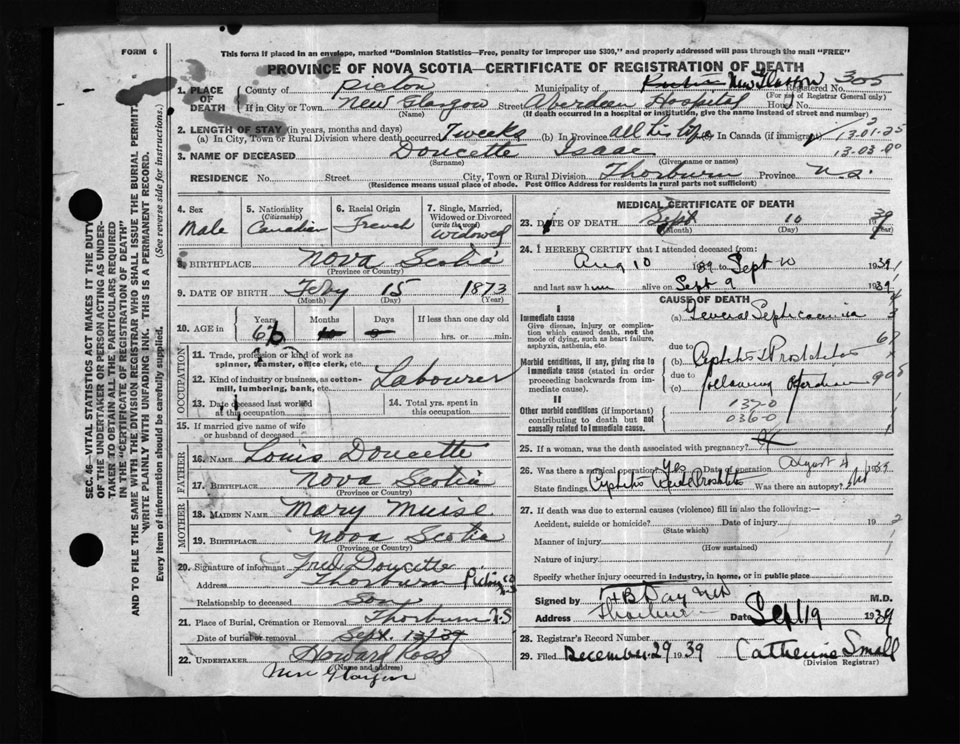 FORM 6
This form if placed in an envelope, marked "Dominion Statistics—Free, penalty for improper use $300," and properly addressed will pass through the mail "FREE"
PROVINCE OF NOVA SCOTIA—CERTIFICATE OF REGISTRATION OF DEATH
SEC. 46—VITAL STATISTICS ACT MAKES IT THE DUTY
OF THE UNDERTAKER OR PERSON ACTING AS UNDER-
TAKER TO OBTAIN ALL THE PARTICULARS REQUIRED
IN THE "CERTIFICATE OF REGISTRATION OF DEATH"
AND TO FILE THE SAME WITH THE DIVISION REGISTRAR WHO SHALL ISSUE THE BURIAL PERMIT.
WRITE PLAINLY WITH UNFADING INK. THIS IS A PERMANENT RECORD.
Every item of information should be carefully supplied. (See reverse side for instructions.)
1. PLACE OF DEATH County of Pictou Municipality of New Glasgow Registered No. 305
(For use of Registrar General only)
If in City or Town New Glasgow Street Aberdeen Hospital House No.
(Name) (If death occurred in a hospital or institution, give its name instead of street and number)
2. LENGTH OF STAY (in years, months and days)
(a) In City, Town or Rural Division where death occurred 7 weeks (b) In Province all his life In Canada (if immigrant) 13.01.25
3. NAME OF DECEASED Doucette Isaac 13-03.00
(Surname) (Given name or names)
RESIDENCE No. Street City, Town or Rural Division Thorburn Province N.S.
(Residence means usual place of abode. Post Office Address for residents in rural parts not sufficient)
4. Sex Male
5. Nationality (Citizenship) Canadian
6. Racial Origin French
7. Single, Married, Widowed or Divorced (write the word) Widowed
8. BIRTHPLACE Nova Scotia
(Province or Country)
9. DATE OF BIRTH Feby 15 1873
(Month) (Day) (Year)
10. AGE in Years 66 Months Days If less than one day old
hrs. or min.
OCCUPATION
11. Trade, profession or kind of work as spinner, teamster, office clerk, etc.
Labourer
12. Kind of industry or business, as cotton-mill, lumbering, bank, etc.
13. Date deceased last worked at this occupation
14. Total yrs. spent in this occupation
15. If married give name of wife or husband of deceased
FATHER
16. NAME Louis Doucette
17. BIRTHPLACE Nova Scotia
(Province or Country)
MOTHER
18. MAIDEN NAME Mary Muise
19. BIRTHPLACE Nova Scotia
(Province or Country)
20. Signature of informant Fred Doucette
Address Thorburn Pictou Co N.S
Relationship to deceased Son
21. Place of Burial, Cremation or Removal Thorburn N.S
Date of burial or removal Sept. 13/39
22. UNDERTAKER Howard Ross
(Name and address)
New Glasgow
MEDICAL CERTIFICATE OF DEATH
23. DATE OF DEATH Sept 10 39
(Month) (Day) (Year)
24. I HEREBY CERTIFY that I attended deceased from:
Aug 10 1939 to Sept 10 1939
and last saw him alive on Sept 9 1939
CAUSE OF DEATH
Immediate cause
Give disease, injury or complication which caused death, not the mode of dying, such as heart failure, asphyxia, asthenia, etc.
(a) General Septicaemia
due to
Morbid conditions, if any, giving rise to immediate cause (stated in order proceeding backwards from immediate cause).
(b) Cystitis & Prostatitis
due to
(c) following Operation
1370
036-0
II
Other morbid conditions (if important) contributing to death but not causally related to immediate cause.
25. If a woman, was the death associated with pregnancy?
26. Was there a surgical operation? Yes Date of operation August 4 1939
State findings Was there an autopsy?
27. If death was due to external causes (violence) fill in also the following:—
Accident, suicide or homicide? Date of injury 19
(State which)
Manner of injury
(How sustained)
Nature of injury
Specify whether injury occurred in industry, in home, or in public place
Signed by H B Day MD M.D.
Address Thorburn Date Sept 19 1939
28. Registrar's Record Number
29. Filed December 29 1939 Catherine Small
(Division Registrar)